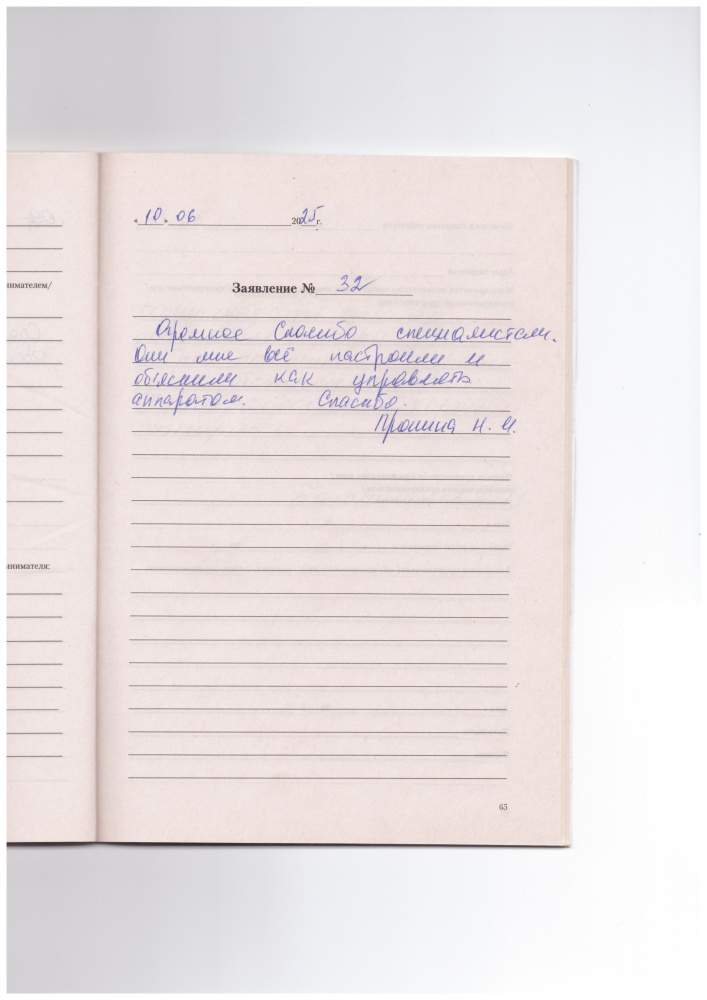 « 10 » 06 2025 г.
нимателем/
Заявление № 32
Огромное спасибо специалистам.
Они мне всё настроили и
объяснили как управлять
аппаратом. Спасибо.
Пронина Н. И.
инимателя:
65